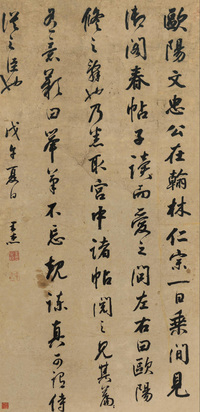 歐陽文忠公在翰林仁宗一日乘間見
御閣春帖子讀而愛之問左右曰歐陽
修之辭也乃悉取宮中諸帖閱之見其篇
有意歎曰舉筆不忘規諫真可謂侍
從之臣也
戊午夏日 王杰